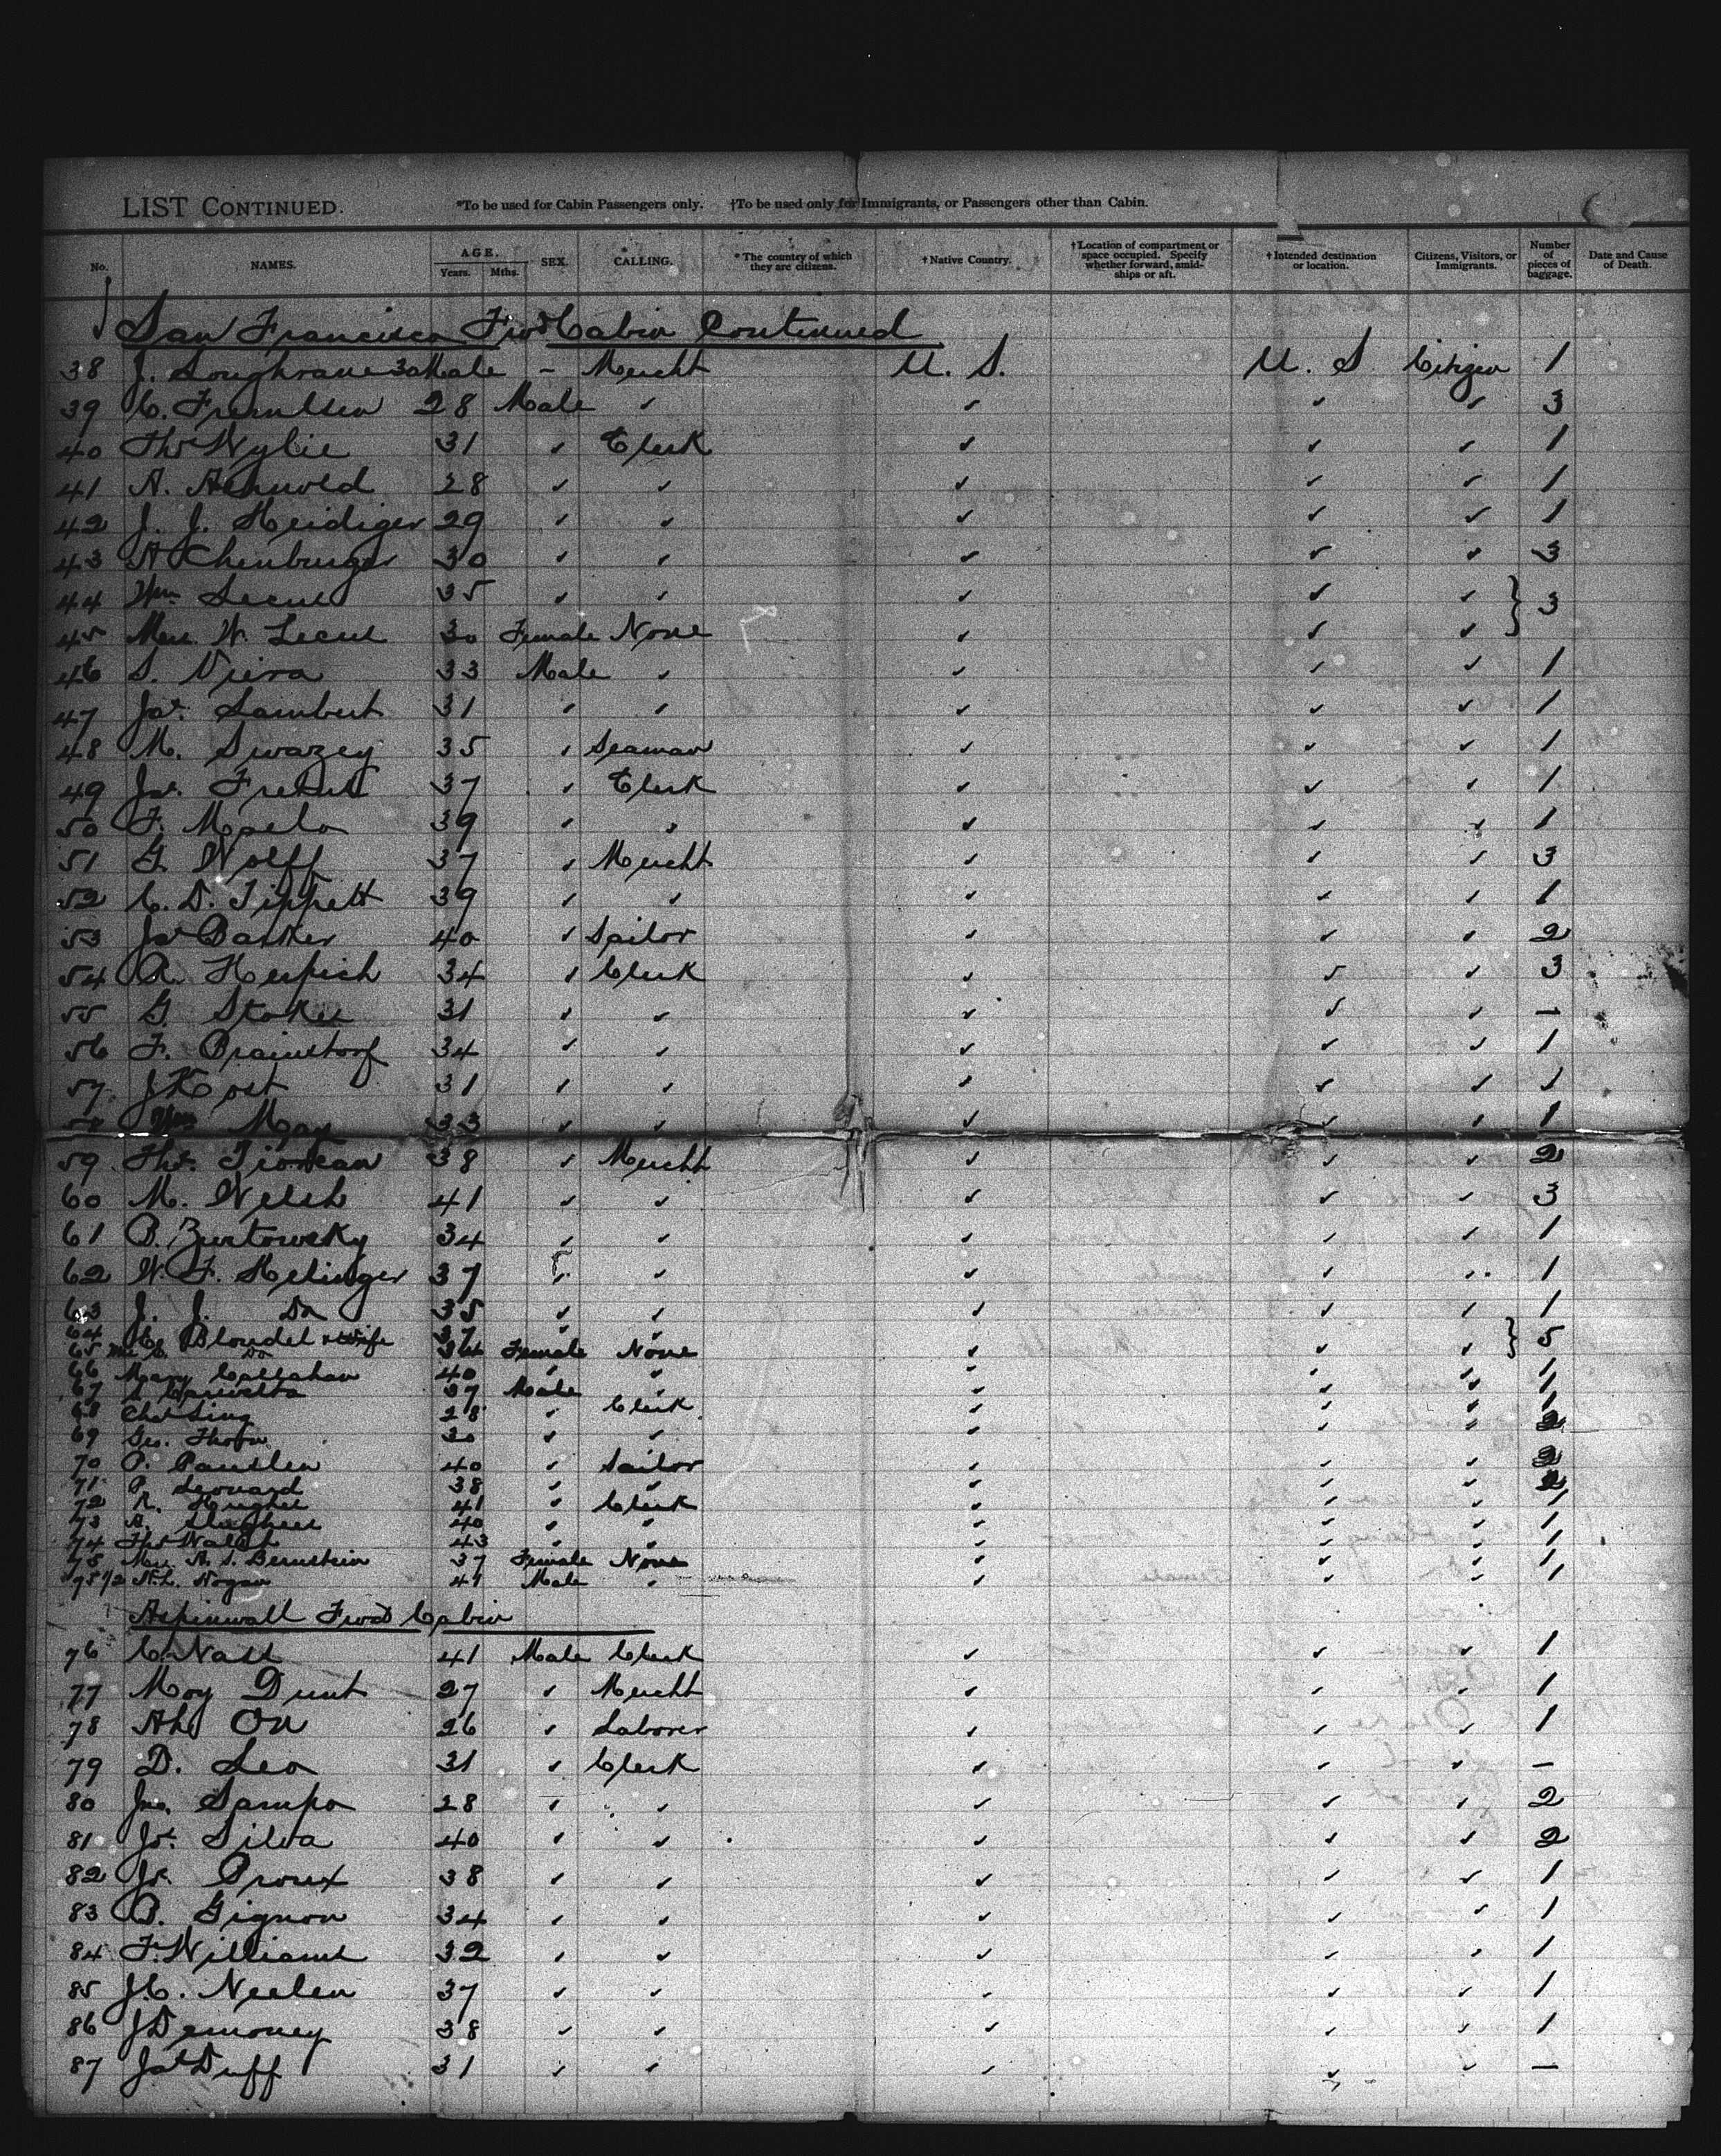 LIST CONTINUED. *To be used for Cabin Passengers only. †To be used only for Immigrants, or Passengers other than Cabin.
No. NAMES. AGE. Years. Mths. SEX. CALLING. *The country of which they are citizens. †Native Country. †Location of compartment or space occupied. Specify whether forward, amidships or aft. †Intended destination or location. Citizens, Visitors, or Immigrants. Number of pieces of baggage. Date and Cause of Death.
San Francisco Fwd Cabin Continued
38 J. Loughrane 30 Male - Mercht U. S. U. S Citizen 1
39 C. 28 Male ✓ ✓ ✓ ✓ 3
40 Thos Wylie 31 ✓ Clerk ✓ ✓ ✓ 1
41 A. 28 ✓ ✓ ✓ ✓ ✓ 1
42 J. J. Heidiger 29 ✓ ✓ ✓ ✓ ✓ 1
43 30 ✓ ✓ ✓ ✓ ✓ 3
44 Wm 35 ✓ ✓ ✓ ✓ ✓ } 3
45 Mrs. W. 30 Female None ✓ ✓ ✓
46 S. Viera 33 Male ✓ ✓ ✓ ✓ 1
47 Jas. Lambert 31 ✓ ✓ ✓ ✓ ✓ 1
48 M. Swazey 35 ✓ Seaman ✓ ✓ ✓ 1
49 Jas. French 37 ✓ Clerk ✓ ✓ ✓ 1
50 F. 39 ✓ ✓ ✓ ✓ ✓ 1
51 G. Wolff 37 ✓ Mercht ✓ ✓ ✓ 3
52 C. D. Tippett 39 ✓ ✓ ✓ ✓ ✓ 1
53 Jas Barker 40 ✓ Sailor ✓ ✓ ✓ 2
54 R. Herpich 34 ✓ Clerk ✓ ✓ ✓ 3
55 G. Stokes 31 ✓ ✓ ✓ ✓ ✓ —
56 F. 34 ✓ ✓ ✓ ✓ ✓ 1
57 J Kost 31 ✓ ✓ ✓ ✓ ✓ 1
58 Wm May 33 ✓ ✓ ✓ ✓ ✓ 1
59 Thos. 38 ✓ Mercht ✓ ✓ ✓ 2
60 M. Welsh 41 ✓ ✓ ✓ ✓ ✓ 3
61 B. Zurtowsky 34 ✓ ✓ ✓ ✓ ✓ 1
62 W. F. Helinger 37 ✓ ✓ ✓ ✓ ✓ 1
63 J. J. Do 35 ✓ ✓ ✓ ✓ ✓ 1
64 E. Blondel & wife 37 ✓ ✓ } 5
65 Mrs E. Do 34 Female None ✓ ✓ ✓
66 Mary Callahan 40 ✓ ✓ ✓ ✓ ✓ 1
67 37 Male ✓ ✓ ✓ ✓ 1
68 Chas Ling 28 ✓ Clerk ✓ ✓ ✓ 1
69 Geo. Thorn 30 ✓ ✓ ✓ ✓ ✓ 2
70 P. Paulsen 40 ✓ Sailor ✓ ✓ ✓ 2
71 P. Leonard 38 ✓ ✓ ✓ ✓ ✓ 2
72 R. Hughes 41 ✓ Clerk ✓ ✓ ✓ 1
73 40 ✓ ✓ ✓ ✓ ✓ 1
74 Thos Walsh 43 ✓ ✓ ✓ ✓ ✓ 1
75 Mrs. A. S. Bernstein 37 Female None ✓ ✓ ✓ 1
75 1/2 N. L. Hogan 41 Male ✓ ✓ ✓ ✓
Aspinwall Fwd Cabin
76 C. Nass 41 Male Clerk ✓ ✓ ✓ 1
77 Moy Dunt 27 ✓ Mercht ✓ ✓ ✓ 1
78 Ah On 26 ✓ Laborer ✓ ✓ ✓ 1
79 D. Leo 31 ✓ Clerk ✓ ✓ ✓ —
80 Jno. Sampo 28 ✓ ✓ ✓ ✓ ✓ 2
81 Js. Silva 40 ✓ ✓ ✓ ✓ ✓ 2
82 Js. Proux 38 ✓ ✓ ✓ ✓ ✓ 1
83 B. Gignon 34 ✓ ✓ ✓ ✓ ✓ 1
84 F. Williams 32 ✓ ✓ ✓ ✓ ✓ 1
85 J. C. Neelen 37 ✓ ✓ ✓ ✓ ✓ 1
86 J Demoney 38 ✓ ✓ ✓ ✓ ✓ 1
87 Jas Duff 31 ✓ ✓ ✓ ✓ ✓ —